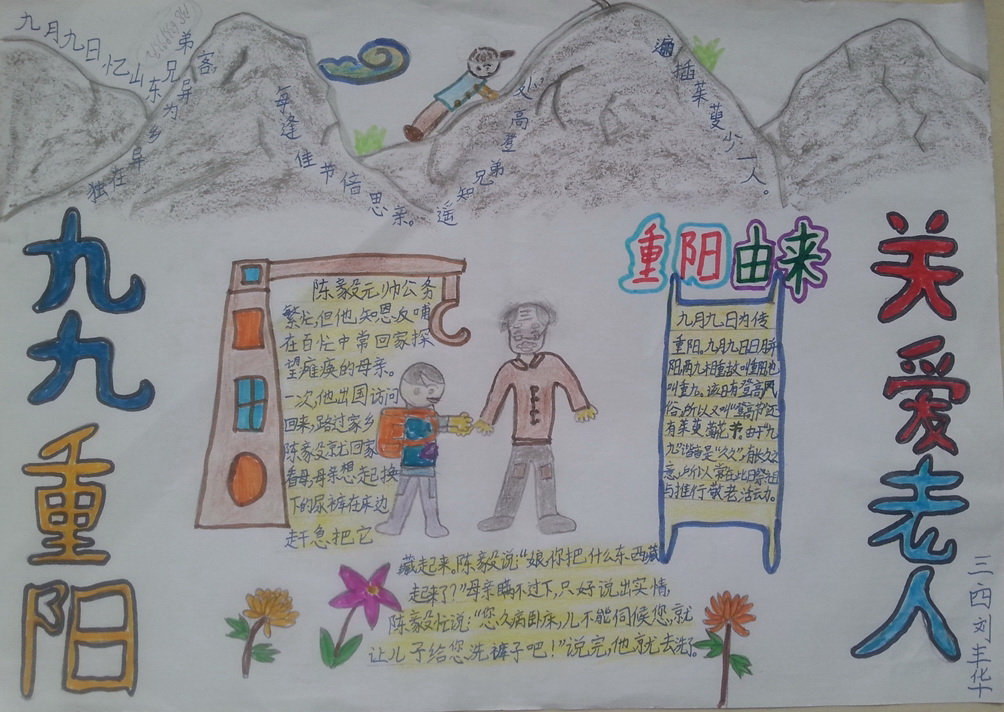 九月九日忆山东兄弟
独在异乡为异客，
每逢佳节倍思亲。
遥知兄弟登高处，
遍插茱萸少一人。
九九重阳
陈毅元帅公务
繁忙,但他,知恩反哺
在百忙中常回家探
望瘫痪的母亲。
一次,他出国访问
回来,路过家乡
陈毅没就回家
看母,母亲想起换
下的尿裤在床边
赶急把它
藏起来。陈毅说:“娘,你把什么东西藏
起来了?”母亲瞒不过下,只好说出实情,
陈毅忙说:“您久病卧床,儿不能伺候您,就
让儿子给您洗裤子吧!”说完,他就去洗了。
重阳由来
九月九日为传
重阳。九月九日日月并
阳两九相重故叫重阳也
叫重九。该日有登高风
俗,所以又叫“登高节”还
有茱萸 菊花 节,由于“九
九”谐音是“久久”有长久之
意,所以常在此日祭祖
与推行敬老活动。
关爱老人
三.四刘丰华